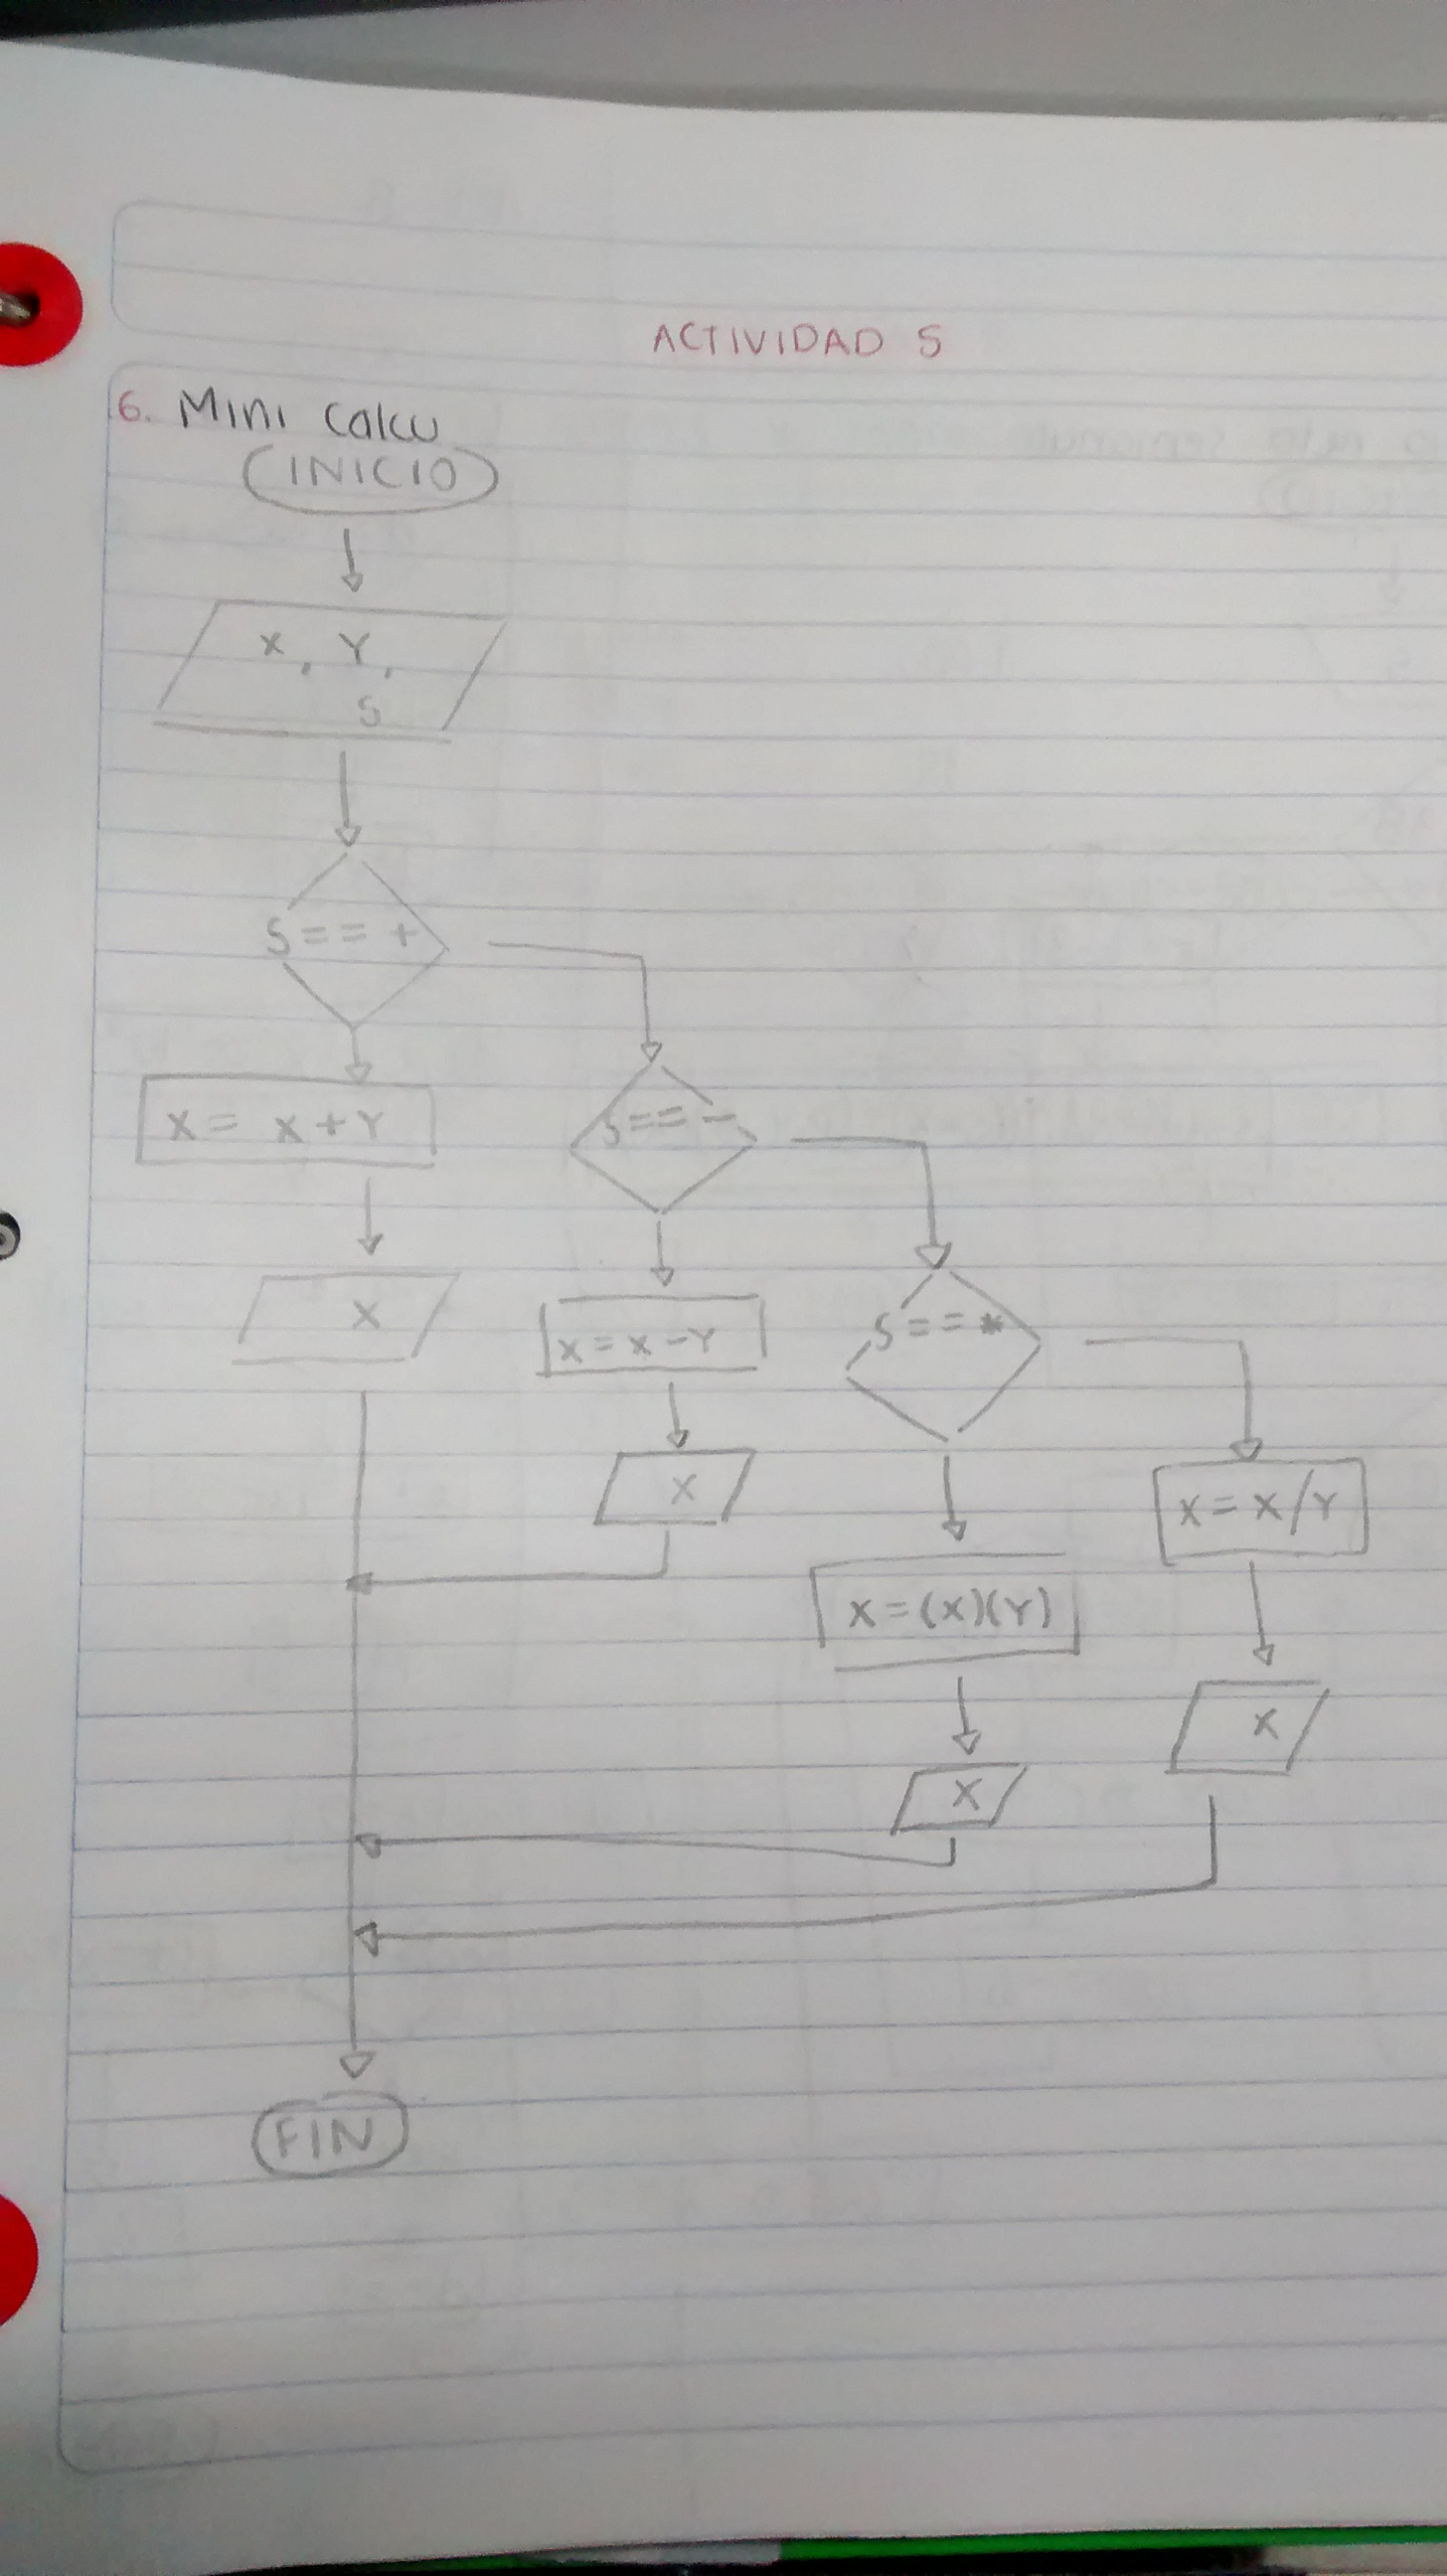 ACTIVIDAD 5
6. Mini calcu
INICIO
X, Y,
S
S == +
X = X + Y
X
S == -
X = X - Y
X
S == *
X = (X)(Y)
X
X = X / Y
X
FIN